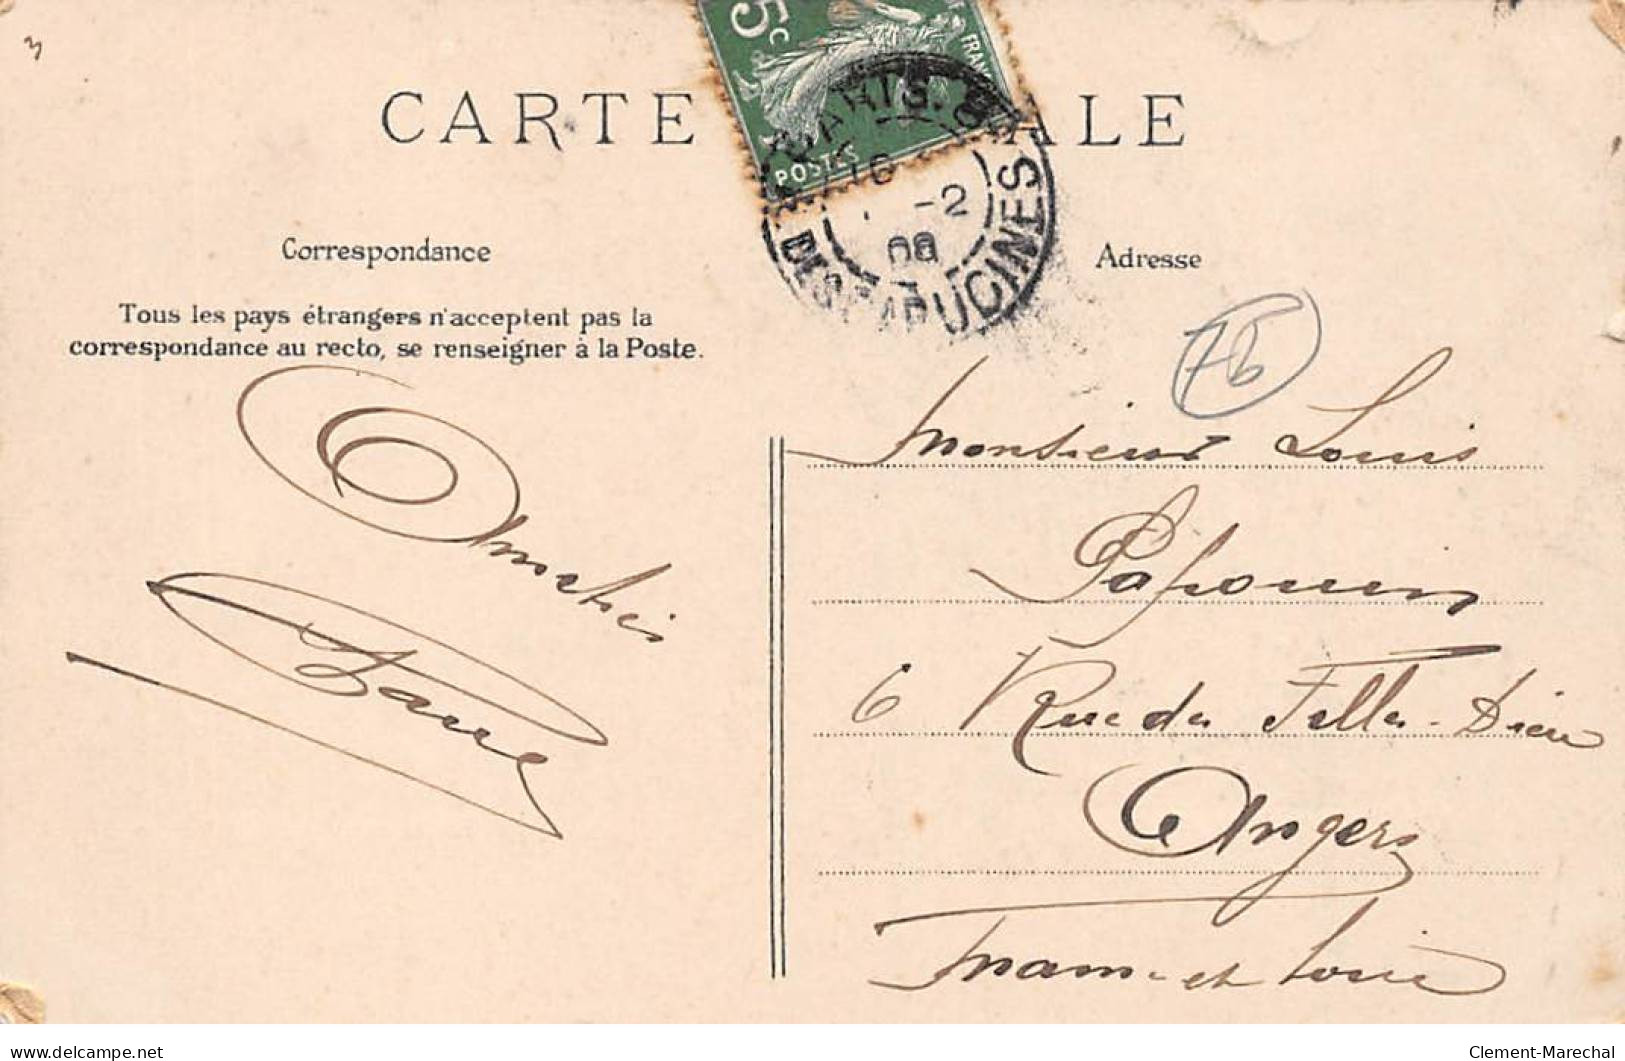 3
CARTE ALE
5c
FRANC
POSTES
PARIS. 8
-2
08
DES CAPUCINES
Correspondance
Adresse
Tous les pays étrangers n'acceptent pas la
correspondance au recto, se renseigner à la Poste.
76
Amitiés
Monsieur Louis
Papouin
6 Rue des Filles-Dieu
Angers
Maine-et-Loire
www.delcampe.net
Clement-Marechal